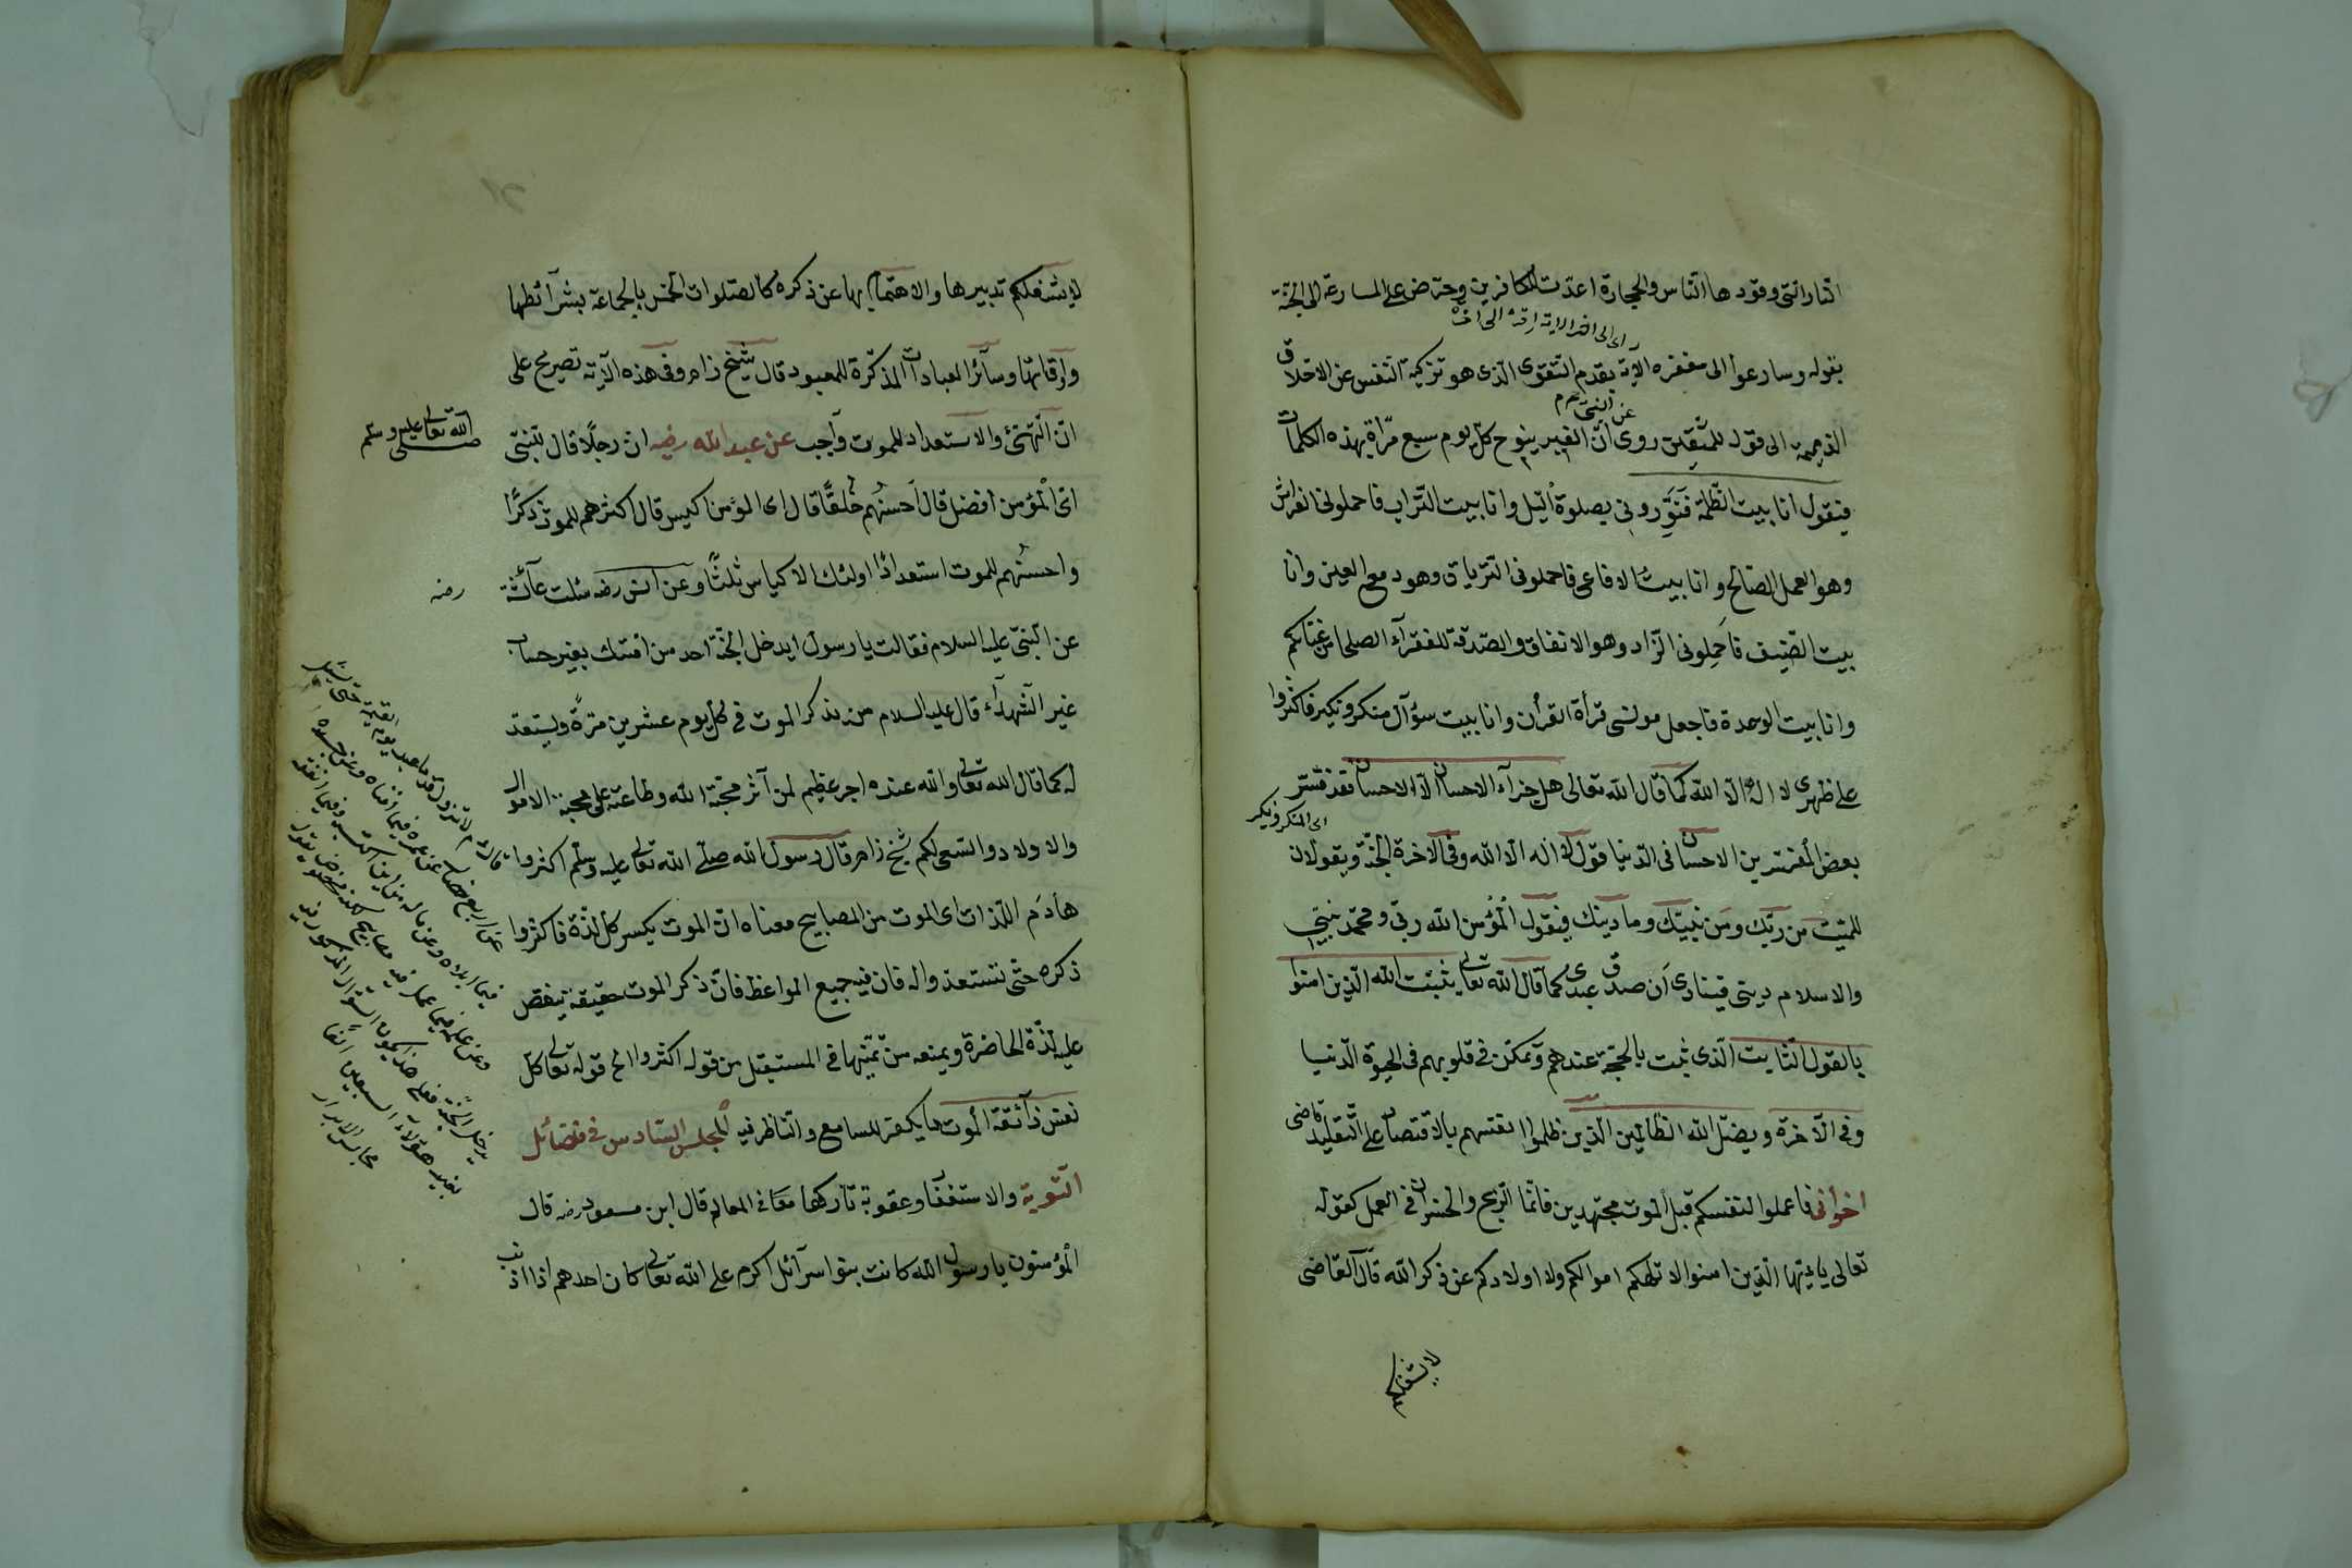 النار التى وقودها الناس والحجارة اعدت للكافرين وحرض على المسارعة الى الجنة
بقوله وسارعوا الى مغفره الآية بقدم التقوى الذى هو تزكية النفس عن الاخلاق
عن النبى عم
الذميمة الى قوله للمتقين روى ان القبر ينوح كل يوم سبع مراة بهذه الكلمات
فيقول انا بيت الظلمة فنورونى بصلوة اليل وانا بيت التراب فاحملونى الفراش
وهو العمل الصالح وانا بيت الافاعى فاحملونى الترياق وهو دمع العين وانا
بيت الضيف فاحملونى الزاد وهو الانفاق والصدقة للفقرآء الصلحا
وانا بيت الوحدة فاجعل مونسى قرأة القرأن وانا بيت سؤال منكر ونكير فاكثروا
على ظهرى لا اله الا الله كما قال الله تعالى هل جزآء الاحسان الا الاحسان فقد فسر
اى المنكر ونكير
بعض المفسرين الاحسان فى الدنيا قول لا اله الا الله وفى الاخرة الجنة ويقولان
للميت من ربك ومن نبيك وما دينك فيقول المؤمن الله ربى ومحمد نبيى
والاسلام دينى فينادى ان صدق عبدى كما قال الله تعالى يثبت الله الذين امنوا
بالقول الثابت الذى ثبت بالحجة عندهم وتمكن فى قلوبهم فى الحيوة الدنيا
وفى الآخرة ويضل الله الظالمين الذين ظلموا انفسهم بالاقتصار على التقليد قاضى
اخوانى فاعملوا لنفسكم قبل الموت مجتهدين فانما الربح والخسران فى العمل كقوله
تعالى يا ايها الذين امنوا لا تلهكم اموالكم ولا اولادكم عن ذكر الله قال القاضى
لا يشغلكم
لا يشغلكم تدبيرها والاهتمام بها عن ذكره كالصلوات الخمس بالجماعة بشرآئطها
واوقاتها وسآئر العبادات المذكرة للمعبود قال شيخ زاده وفى هذه الآية تصريح على
ان التهئ والاستعداد للموت واجب عن عبد الله رضه ان رجلا قال للنبى
صلى الله تعالى عليه وسلم
اى المؤمن افضل قال احسنهم خلقا قال اى المؤمن اكيس قال اكثرهم للموت ذكرا
واحسنهم للموت استعدادا اولئك الاكياس ثلثا وعن انس رضه سئلت عآئشة
رضه
عن النبى عليه السلام فقالت يا رسول ايدخل الجنة احد من امتك بغير حساب
غير الشهدآء قال عليه السلام من يذكر الموت فى كل يوم عشرين مرة ويستعد
له كما قال الله تعالى والله عنده اجر عظيم لمن آثر محبة الله وطاعته على محبة الاموال
والاولاد والسعى لكم شيخ زاده قال رسول الله صلى الله تعالى عليه وسلم اكثروا
هادم اللذات اى الموت من المصابيح معناه ان الموت يكسر كل لذة فاكثروا
ذكره حتى تستعدوا له فان فيه جميع المواعظ فان ذكر الموت حقيقة ينغص
عليه لذة الحاضرة ويمنعه من تمنيها فى المستقبل من قوله اكثروا الخ قوله تعالى كل
نفس ذآئقة الموت ما يكفر للسامع والناظر فيه المجلس السادس فى فضآئل
التوبة والاستغفار وعقوبة تاركهما فى المعالم قال ابن مسعود رضه قال
المؤمنون يا رسول الله كانت بنوا سرآئل اكرم على الله تعالى كان احدهم اذا اذنب
لا تزول قدما عبد يوم القيمة حتى يسئل
عن اربع خصال عن عمره فيما افناه وعن جسده
فيما ابلاه وعن ماله من اين اكتسبه وفيما انفقه
وعن علمه فيما عمل فيه مصابيح
مجالس الابرار